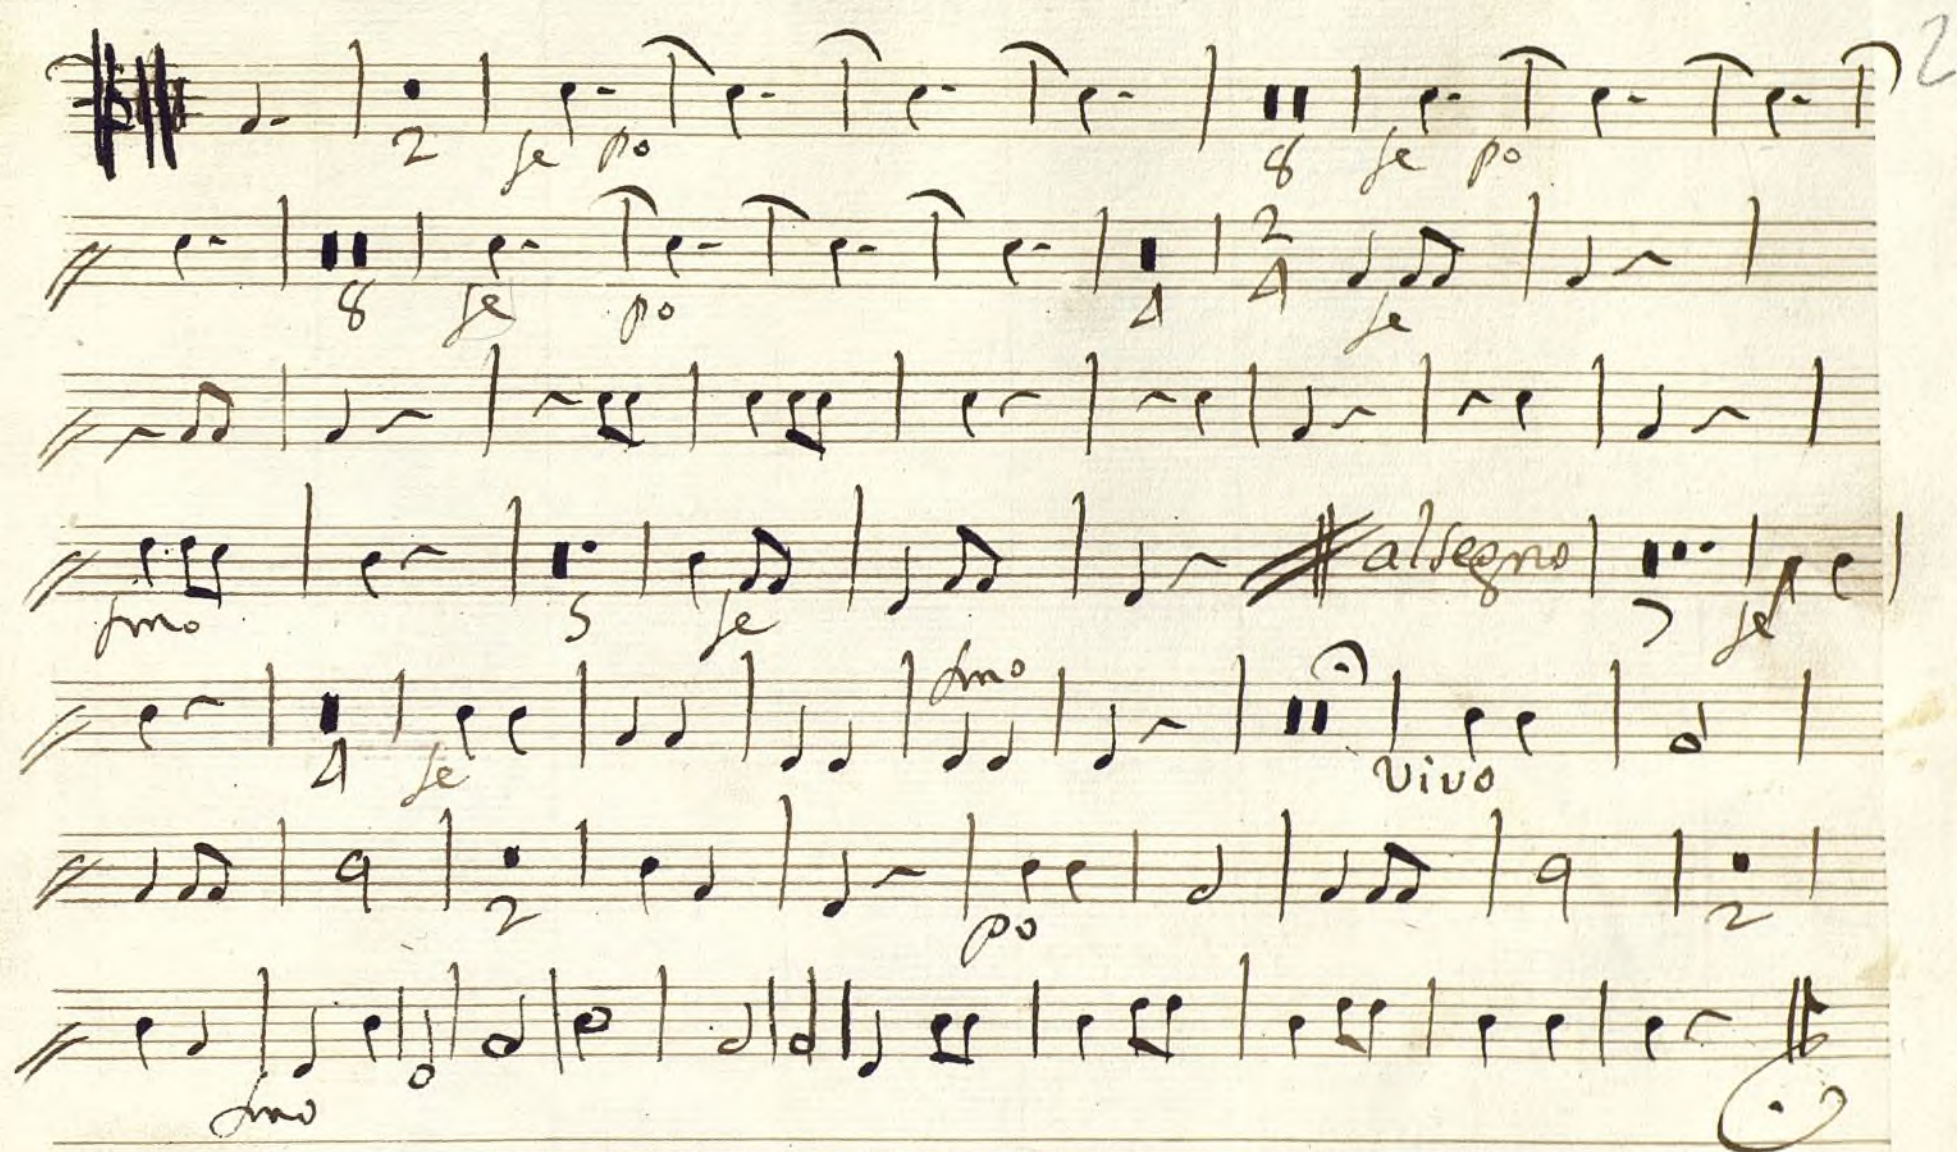 2
2 fe po 8 fe po
8 fe po 4 2 4 fe
fmo 5 fe al segno 7 fe
4 fe fmo vivo
2 po 2
fmo